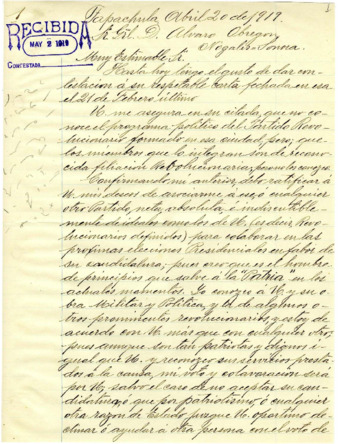 1
RECIBIDA
MAY 2 1919
CONTESTADA
Tapachula Abril 20 de 1919.
A. Gil. D. Alvaro Obregon,
Nogales-Sonora.
Muy Estimable Sr.
Hasta hoy tengo el gusto de dar con-
testacion a su respetable carta fechada en esa
el 21 de Febrero último.
U. me asegura en su citada, que no co-
noce el programa politico del Partido Revo-
lucionario formado en esa ciudad, pero, que
los miembros que lo integran son de recono-
cida filiacion Revolucionaria
Confirmando mi anterior, debo ratificar á
U. mi deseo de asociarme á ese ó cualquier
otro Partido, neta, absoluta, é indiscutible-
mente de ideales como los de U. (es decir Revo-
lucionarios definidos) para colaborar en las
proximas elecciones Presidenciales en pro de
su candidatura, pues creo que es el hombre
de principios que salve á la "Patria" en los
actuales momentos. Yo conozco á U. y su o-
bra Militar y Politica, y la de algunos o-
tros prominentes revolucionarios, y estoy de
acuerdo con U. más que con cualquier otro,
pues aunque son tan patriotas y dignos i-
gual que U. y reconozco sus servicios presta-
dos á la causa, mi voto y colavoracion será
por U., salvo el caso de no aceptar su can-
didatura, ó que por patriotismo, ó cualquiera
otra razon de Estado juzgue U. oportuno de-
clinar ó ayudar á otra persona con el voto de